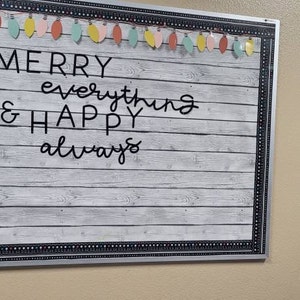 MERRY
everything
& HAPPY
always